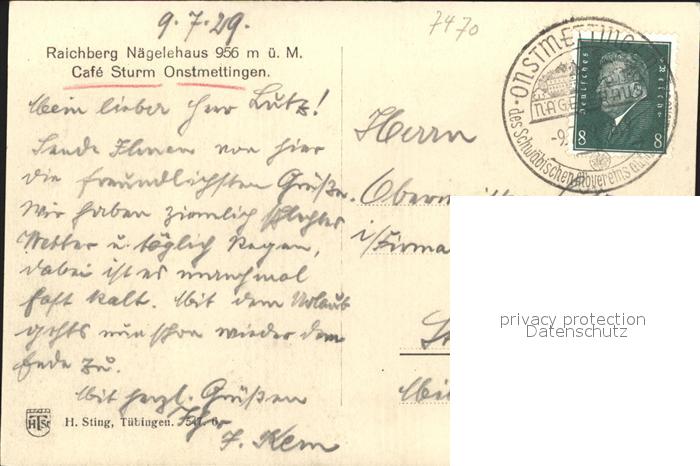 9.7.29.
7470
Raichberg Nägelehaus 956 m ü. M.
Café Sturm Onstmettingen.
Mein lieber Herr Lutz!
Sende Ihnen von hier
die freundlichsten Grüße.
Wir haben ziemlich schlechtes
Wetter u. täglich Regen,
dabei ist es manchmal
fast kalt. Mit dem Urlaub
gehts nun schon wieder dem
Ende zu.
Mit herzl. Grüßen
Ihr
F. Kern
H. Sting, Tübingen.
Herrn
i/Firma
ONSTMETTINGEN
NÄGELEHAUS
des Schwäbischen Albvereins
Deutsches Reich
8 8
privacy protection
Datenschutz